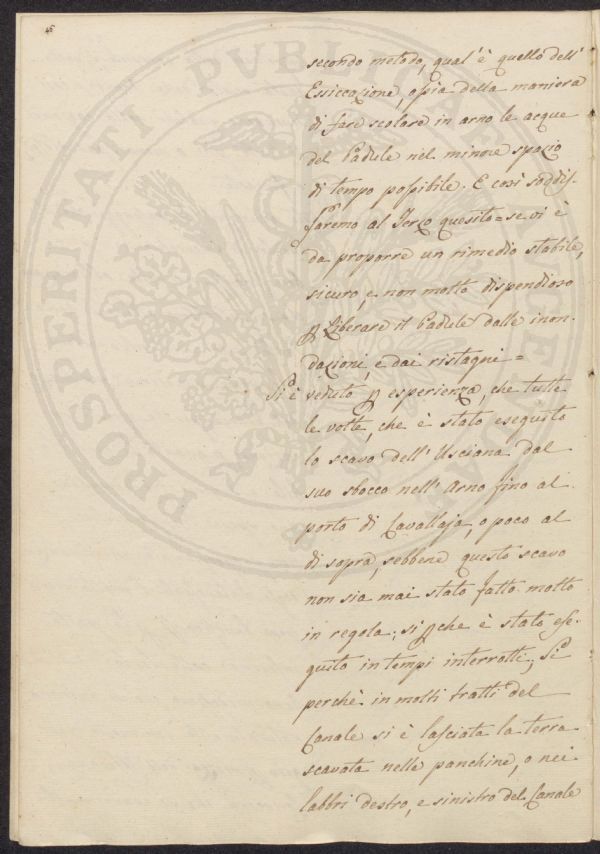 secondo metodo, qual'è quello dell'
Essiccazione, osia della maniera
di fare scolare in arno le acque
del Padule nel minore spazio
di tempo possibile. E così soddis-
faremo al Terzo quesito = se vi è
da proporre un rimedio stabile,
sicuro, e non molto dispendioso
p Liberare il Padule dalle inon-
dazioni, e dai ristagni =
Si è veduto p esperienza, che tutte
le volte, che è stato eseguito
lo scavo dell'Usciana dal
suo sbocco nell'Arno fino al
porto di Cavallaja, o poco al
di sopra, sebbene questo scavo
non sia mai stato fatto molto
in regola; si pche è stato ese-
guito in tempi interrotti; Si
perchè in molti tratti del
Canale si è lasciata la terra
scavata nelle panchine, o nei
labbri destro, e sinistro del Canale
PROSPERITATI PVBLICAE